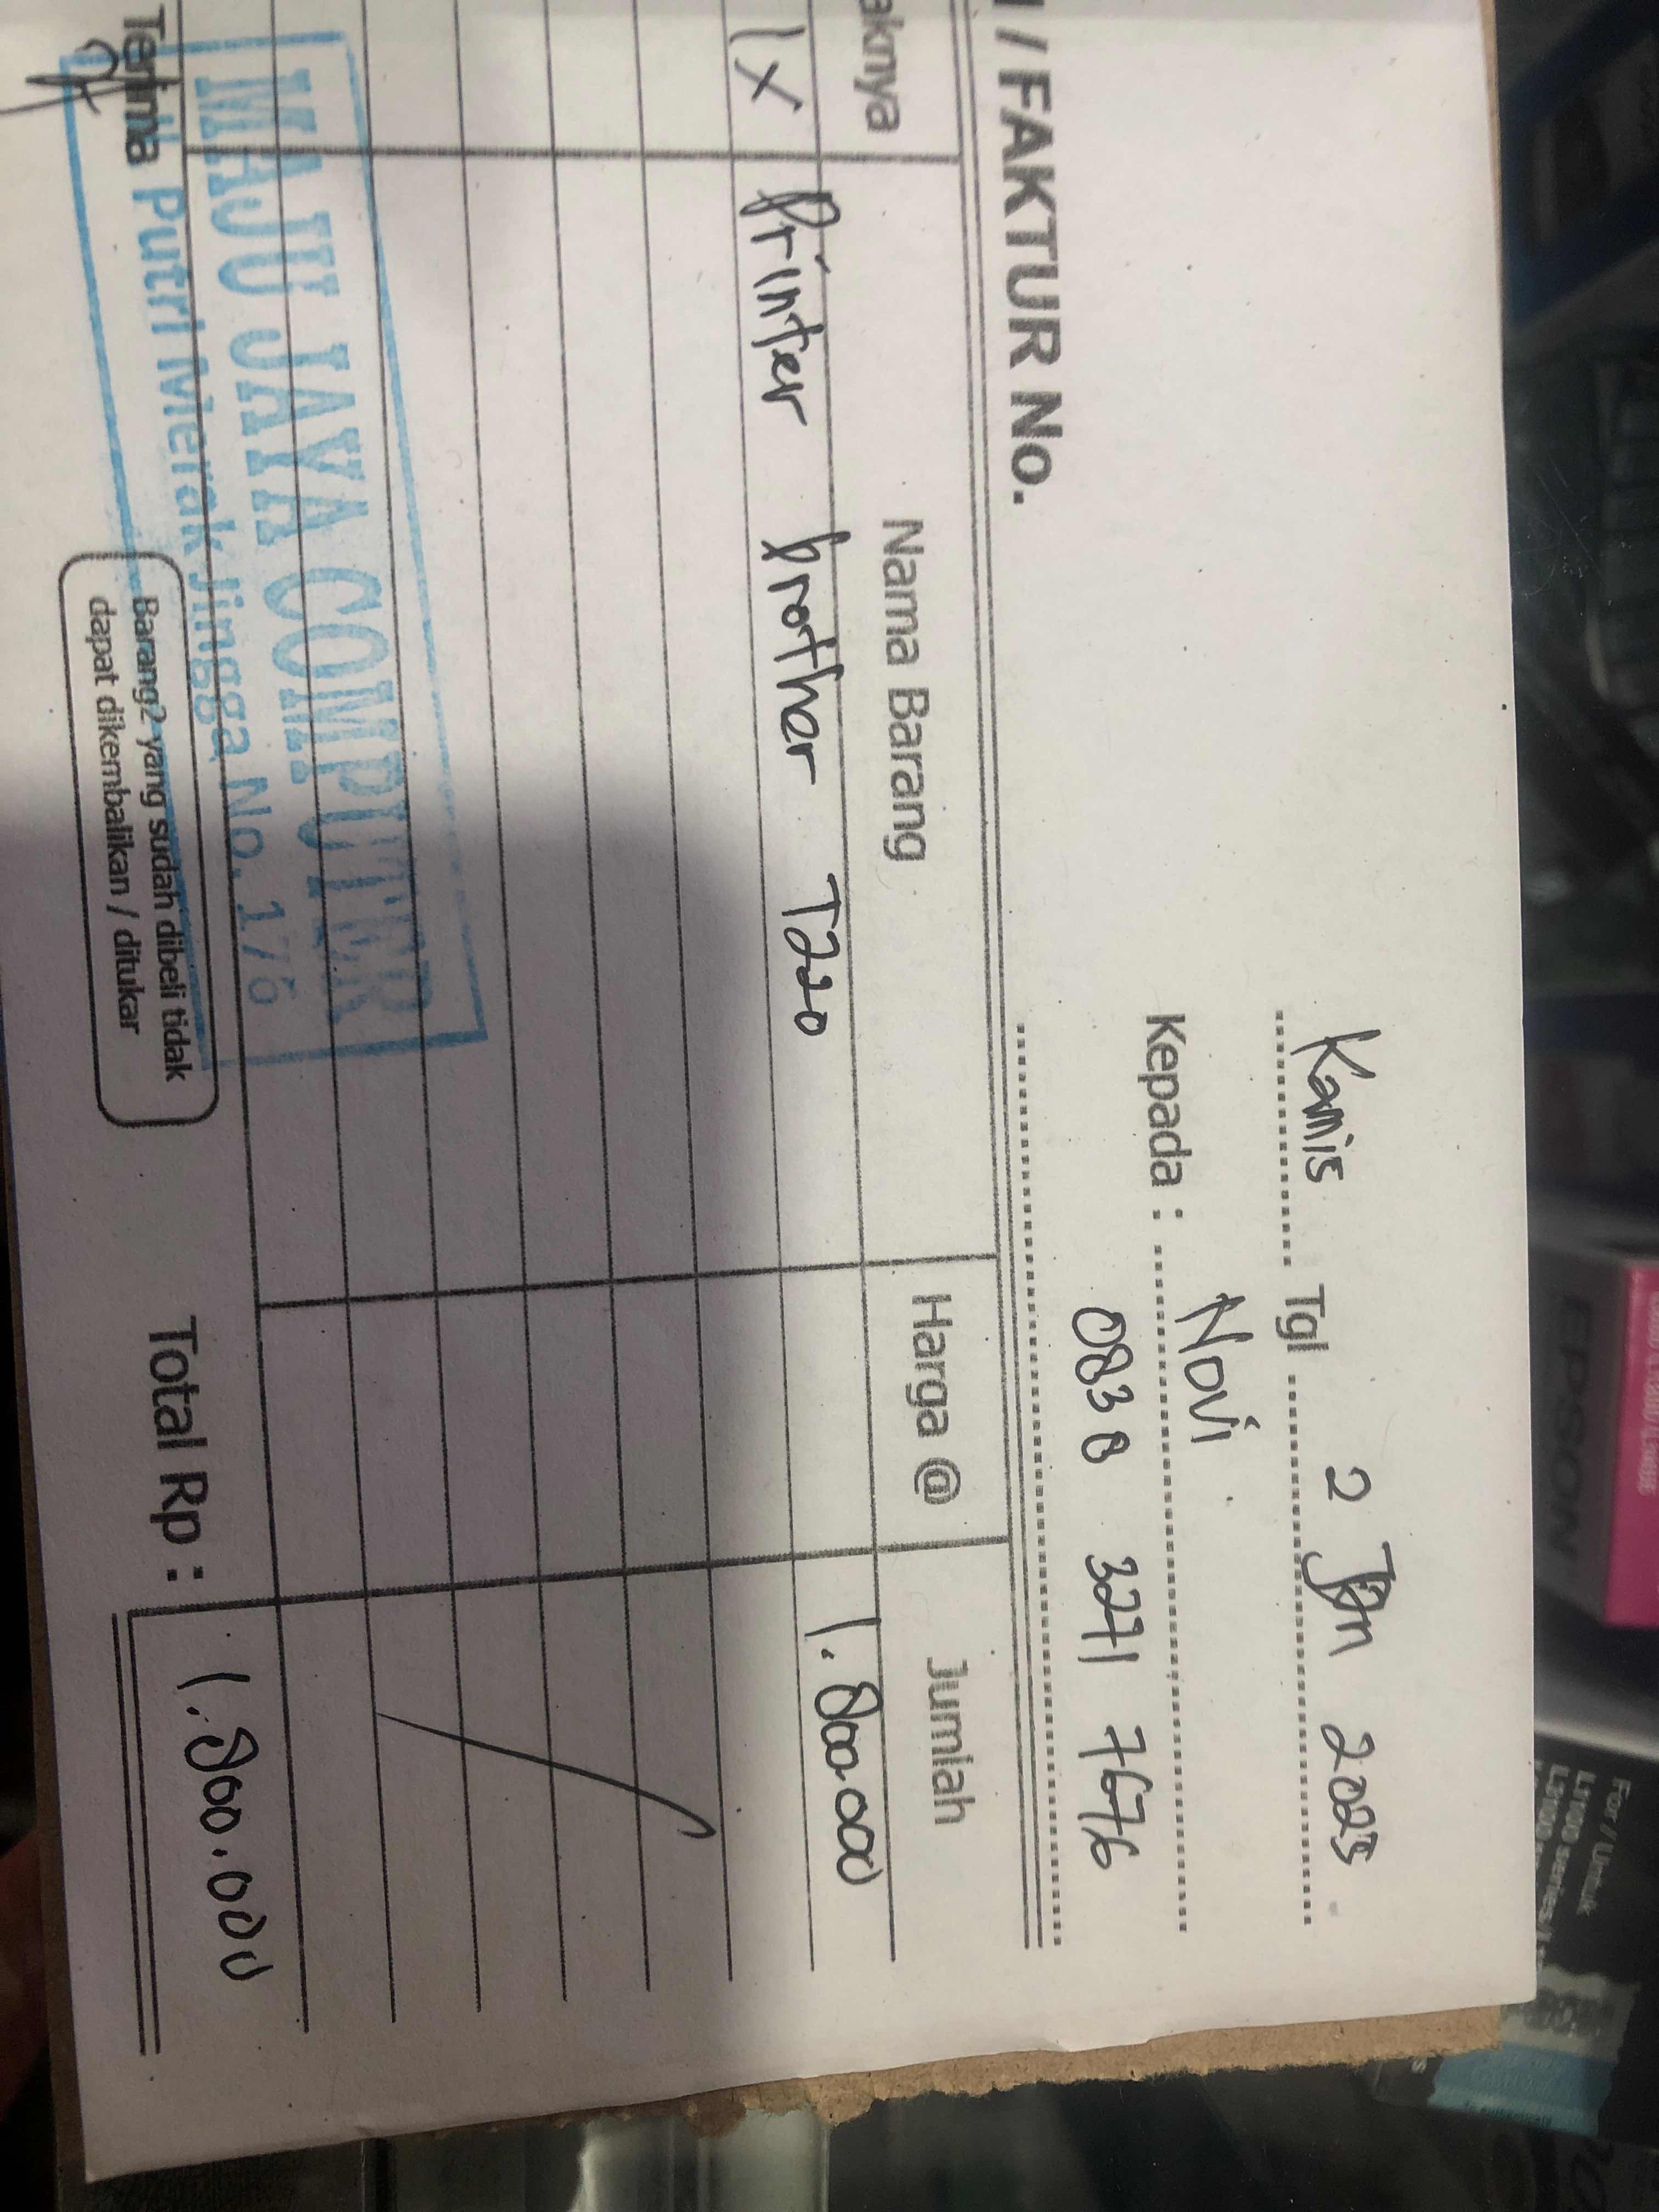 Kamis Tgl 2 Jan 2025
Kepada : Novi
0838 3271 7676
/ FAKTUR No.
aknya Nama Barang Harga @ Jumlah
1x Printer brother T220 1.800.000
MAJU JAYA COMPUTER
Jl. Putri Merak Jingga No. 176
Terima
Barang2 yang sudah dibeli tidak
dapat dikembalikan / ditukar
Total Rp : 1.800.000
EPSON
For / Untuk